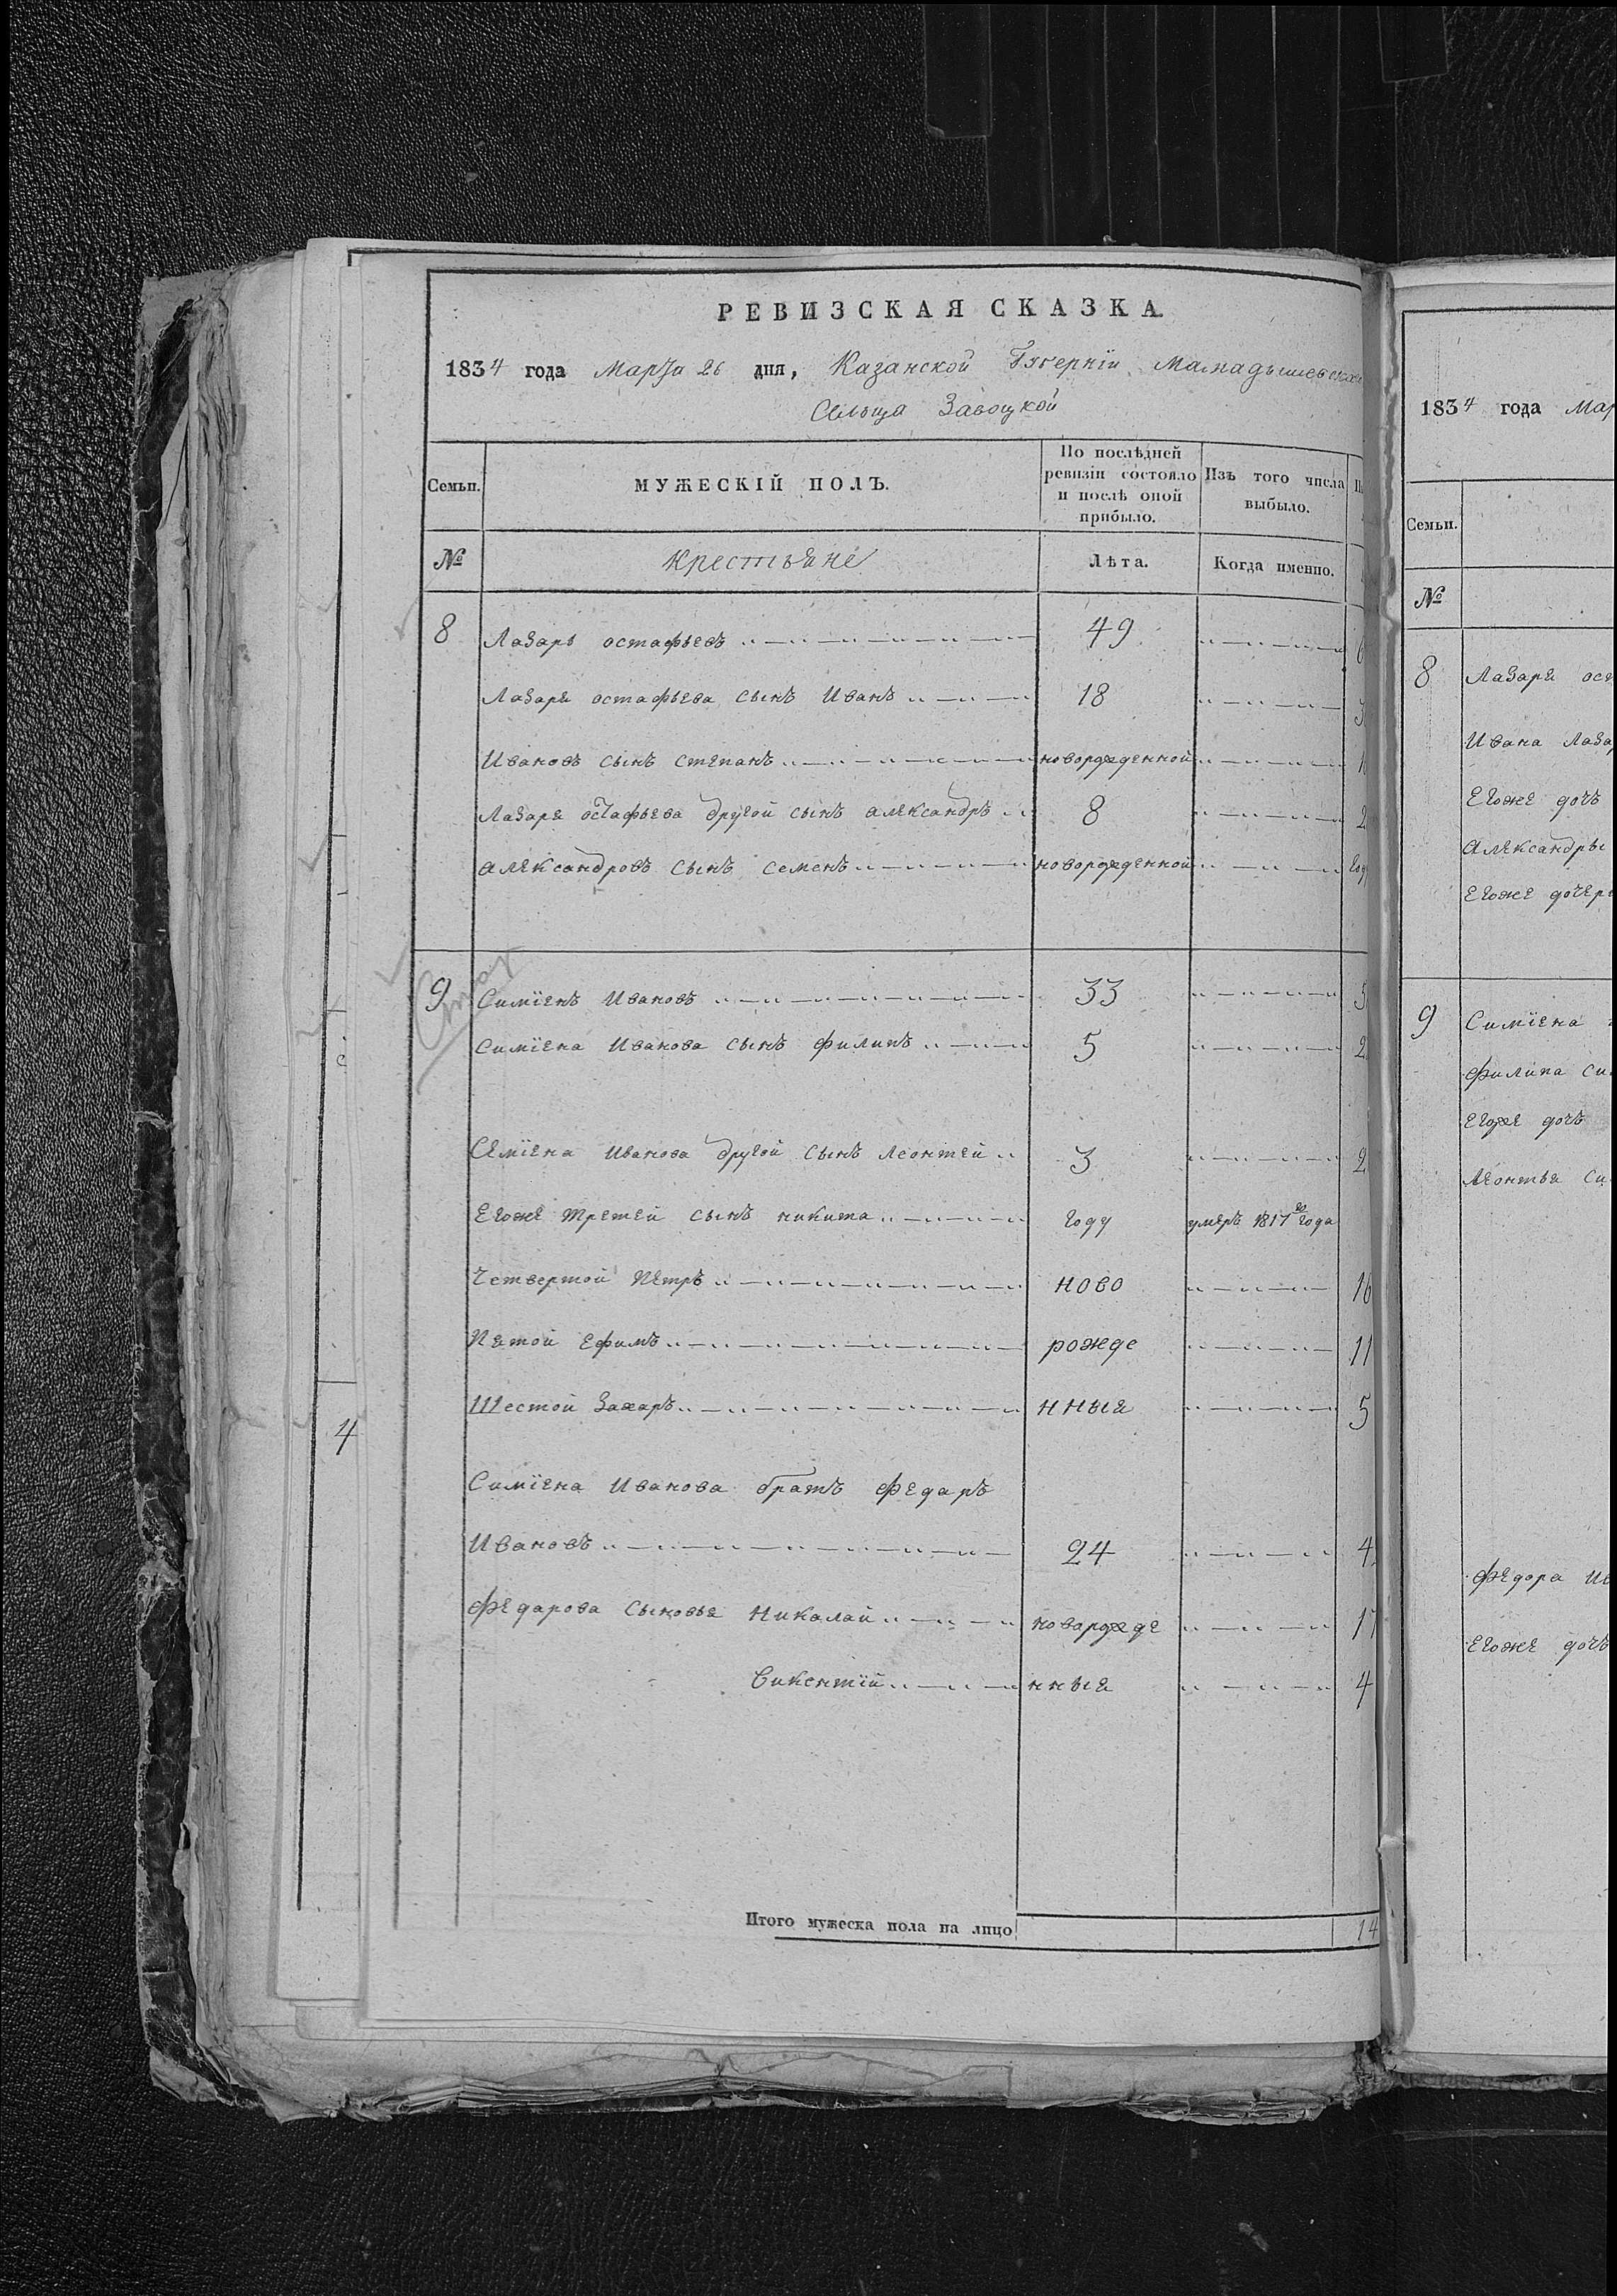 РЕВИЗСКАЯ СКАЗКА.
1834 года Марта 26 дня, Казанской Губернїи Мамадышевска
Сельца Завоцкой
Семьи.
МУЖЕСКІЙ ПОЛЪ.
По послѣдней ревизіи состояло и послѣ оной прибыло.
Изъ того числа выбыло.
№ крестьяне Лѣта. Когда именно.
8 Лазарь остафьевъ 49
Лазаря остафьева сынъ Иванъ 18
Ивановъ сынъ степанъ новорожденной
Лазаря остафьева другой сынъ александръ 8 2
александровъ сынъ семенъ новорожденной год
9 Симїенъ Ивановъ 33 5
Симїена Иванова сынъ филипъ 5 2
Семїена Иванова другой сынъ леонтей 3 2
Егоже третей сынъ никита году умеръ 1817го года
Четвертой Петръ ново 16
Пятой Ефимъ рожде 11
Шестой Захаръ нныя 5
Симїена Иванова братъ Федаръ
Ивановъ 24 4
Федарова сыновья Николай новорожде 17
Викентїй нныя 4
Итого мужеска пола на лицо 14
4
1834 года Мар
Семьи.
№
8 Лазаря ост
Ивана Лаза
Егоже дочь
Александры
Егоже дочер
9 Симїена
Филипа си
Егоже дочь
Леонтья Си
Федора Ив
Егоже дочь